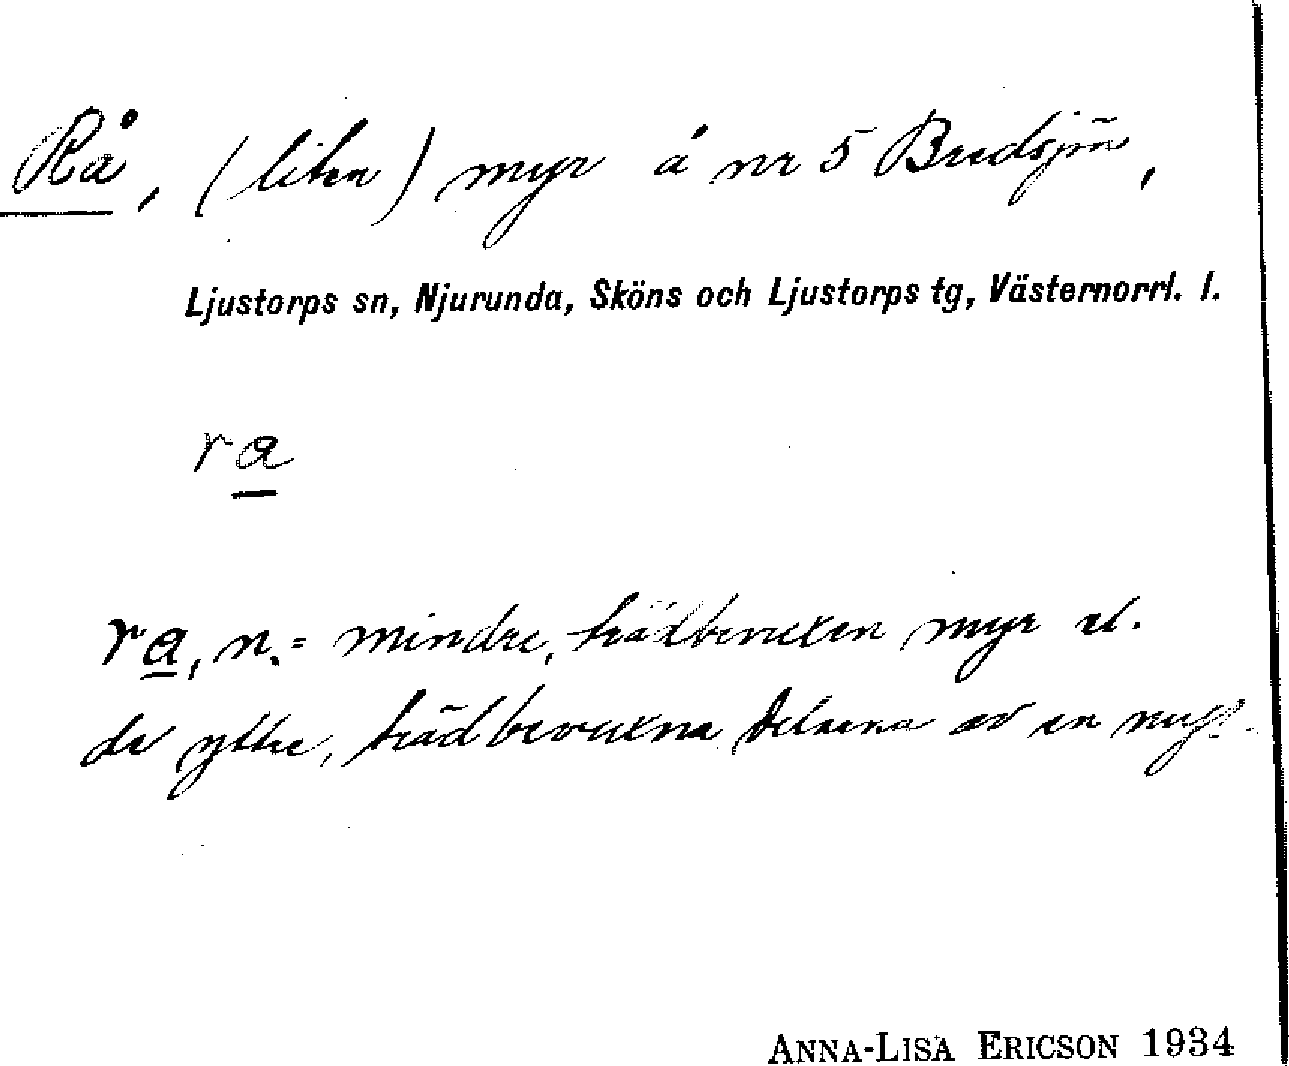 Rå, (liten) myr å nr 5 Bredsjön,
Ljustorps sn, Njurunda, Sköns och Ljustorps tg, Västernorrl. l.
ra
ra, n. = mindre, trädbevuxen myr el.
de yttre, trädbevuxna delarna av en myr.
ANNA-LISA ERICSON 1934